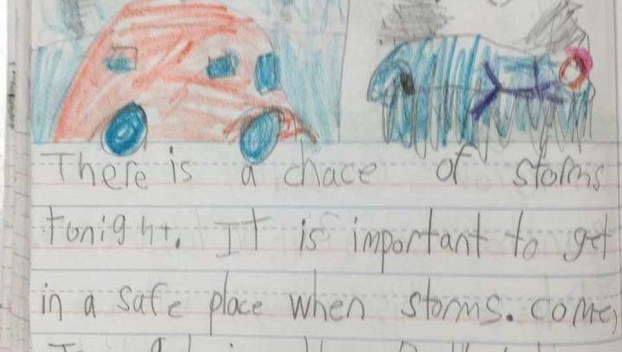 There is a chace of storms
tonight. It is important to get
in a safe place when storms. come,